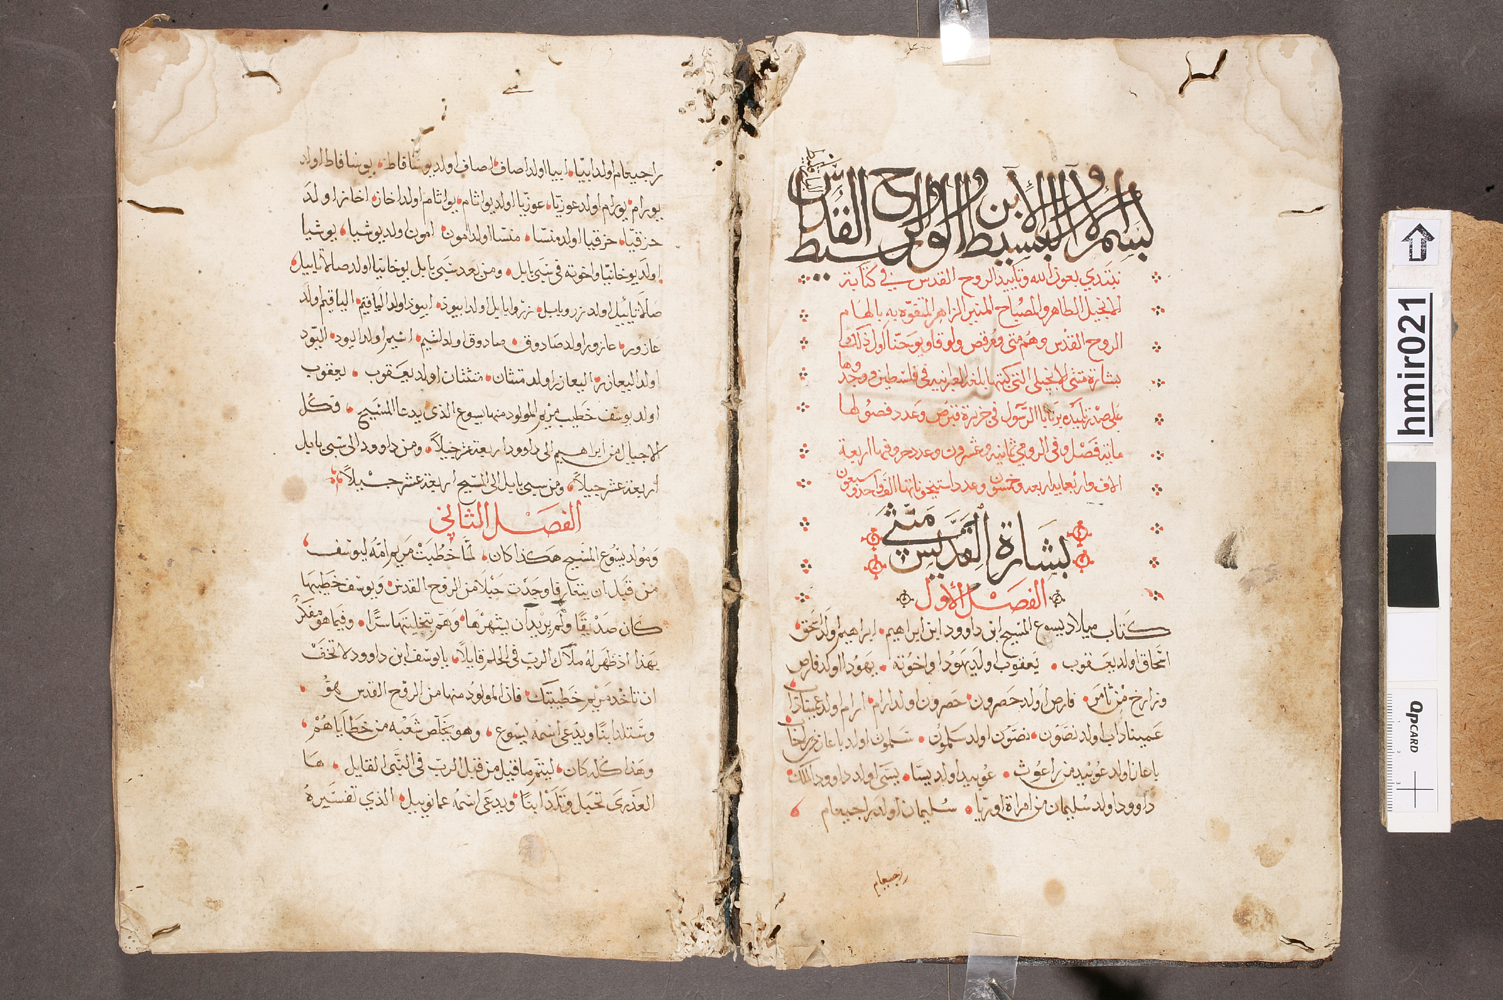 بسم الاب والابن والروح القدس
البسيط الوسيط البسيط
نبتدي بعون الله وتاييد الروح القدس في كتابة
الانجيل الطاهر والمصباح المنير الزاهر المتفوه به بالهام
الروح القدس وهم متى ومرقص ولوقا ويوحنا اول ذلك
بشارة متى الانجيلي التي كتبها بلغة العبرانيه في فلسطين ووجدوها
على صدر تلميذه برنابا الرسول في جزيرة قبرص وعدد فصولها
ماية فصل وفي الرومي ثمانية وعشرون وعدد حروفها اربعة
الاف واربعماية اربعه وخمسون وعدد استيخوناتها الفا واحد وسبعون
بشارة القديس متى
الفصل الاول
كتاب ميلاد يسوع المسيح ابن داوود ابن ابراهيم ابراهيم اولد اسحق
اسحاق اولد يعقوب يعقوب ولد يهودا واخوته يهودا اولد فارص
وزارح من ثامر فارص اولد حصرون حصرون اولد ارام ارام اولد عميناداب
عميناداب اولد نصون نصون اولد سلمون سلمون اولد باعاز من راحاب
باعاز اولد عوبيد من راعوث عوبيد اولد يسا يسى اولد داوود الملك
داوود اولد سليمان من امراة اوريا سليمان اولد راجبيعام
راجبيعام
راجبيعام اولد ابيا ابيا اولد اصاف اصاف اولد يوشافاط يوشافاط اولد
يورام يورام اولد عوزيا عوزيا اولد يواثام يواثام اولد اخاز اخاز اولد
حزقيا حزقيا اولد منسا منسا اولد امون امون ولد يوشيا يوشيا
اولد يوخانيا واخوته في سبي بابل ومن بعد سبي بابل يوخانيا اولد صلاتاييل
صلاتاييل اولد زروبابل زروبابل اولد ابيود ابيود اولد الياقيم الياقيم اولد
عازور عازور اولد صادوق صادوق اولد اشيم اشيم اولد اليود اليود
اولد اليعازر اليعازر اولد متثان متثان اولد يعقوب يعقوب
اولد يوسف خطيب مريم المولود منها يسوع الذي يدعا المسيح فكل
الاجيال من ابراهيم الى داوود اربعة عشر جيلاً ومن داوود الى سبي بابل
اربعة عشر جيلاً ومن سبي بابل الى المسيح اربعة عشر جيلاً
الفصل الثاني
ومولد يسوع المسيح هكذا كان لما خطبت مريم امه ليوسف
من قبل ان يتعارفا وجدت حبلا من الروح القدس ويوسف خطيبها
كان صديقا ولم يريد ان يشهرها وهم بتخليتها سراً وفيما هو مفكر
بهذا اذ ظهر له ملاك الرب في الحلم قايلاً يا يوسف ابن داوود لا تخف
ان تاخذ مريم خطيبتك فان المولود منها من الروح القدس هو
وستلد ابنا ويدعى اسمه يسوع وهو يخلص شعبه من خطاياهم
وهذا كله كان ليتم ما قيل من قبل الرب في النبي القايل ها
العذرى تحبل وتلد ابنا ويدعى اسمه عمانوييل الذي تفسيره
hmir021
QPCARD